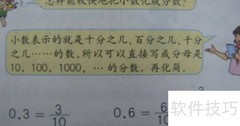 怎样能较快地把小数化成分数?
小数表示的就是十分之几,百分之几,千分
之几……的数,所以可以直接写成分母是
10,100,1000,…的分数,再化简。
0.3 = 3/10 0.6 = 6/10
软件技巧